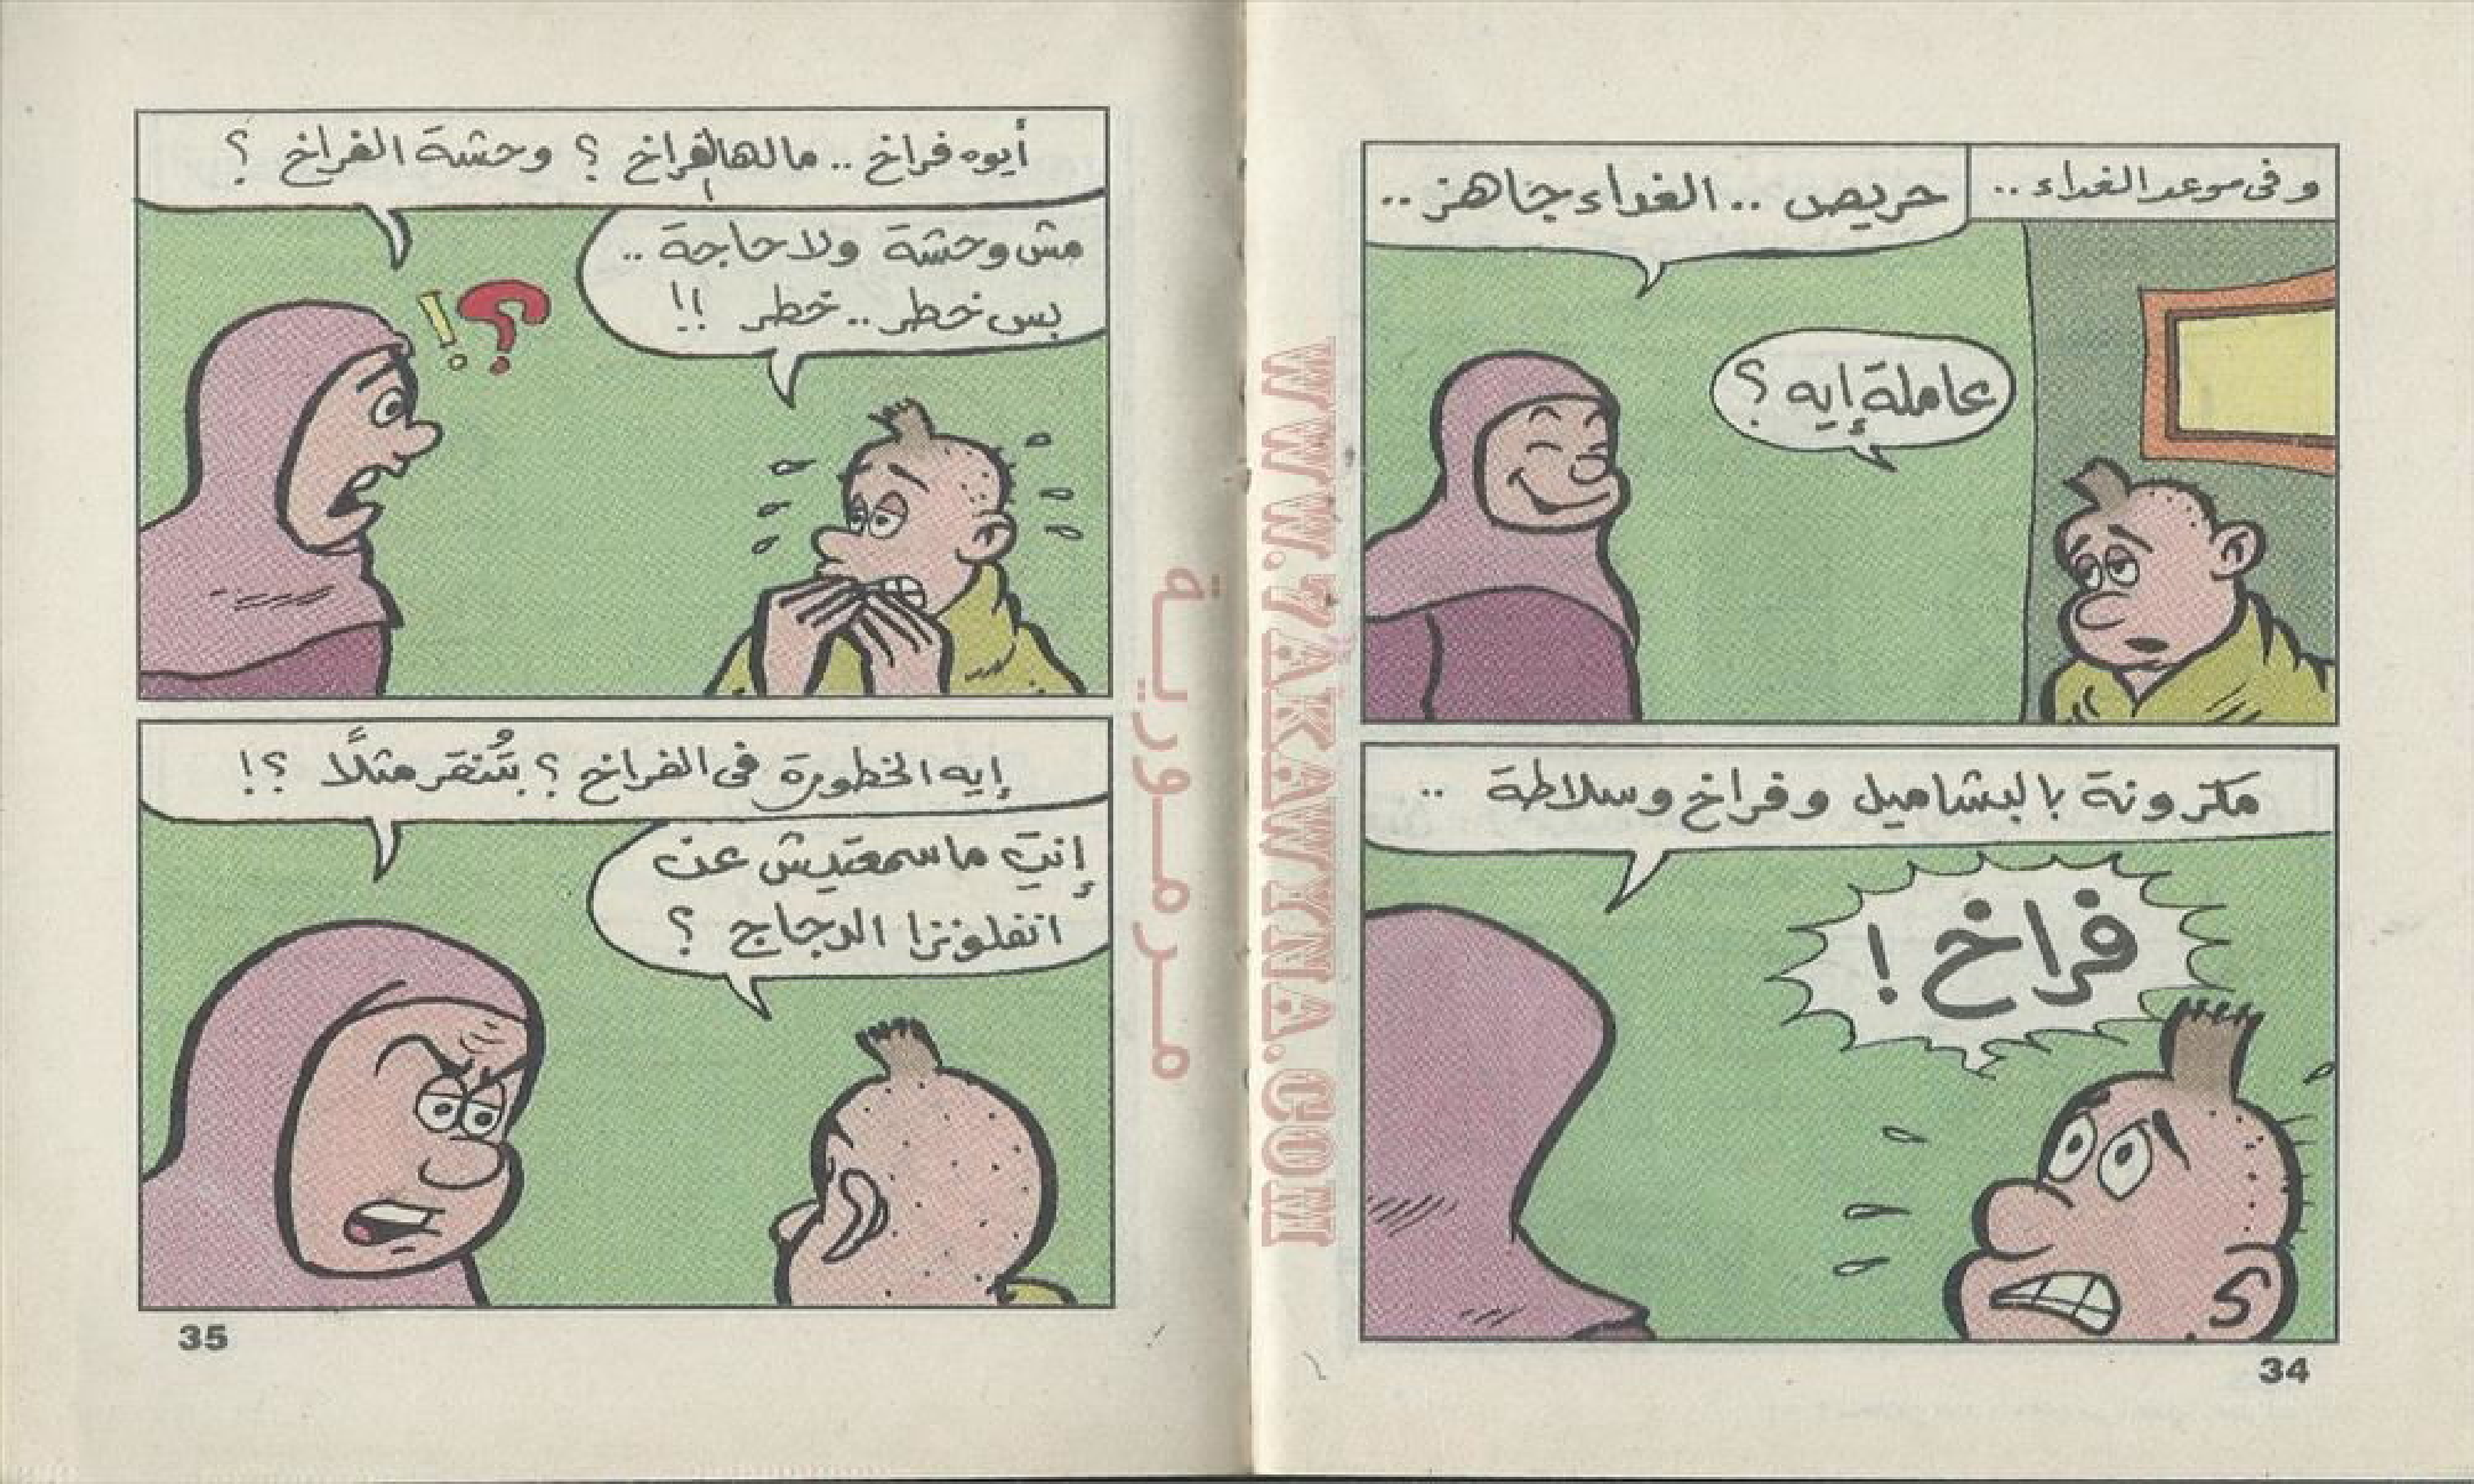 وفى موعد الغداء ..
حريص .. الغداء جاهز ..
عاملة إيه ؟
مكرونة بالبشاميل وفراخ وسلاطة ..
فراخ !
34
أيوه فراخ .. مالها الفراخ ؟ وحشة الفراخ ؟
!؟
مش وحشة ولا حاجة ..
بس خطر .. خطر !!
إيه الخطورة فى الفراخ ؟ بتُنقر مثلًا ؟!
إنتِ ما سمعتيش عن
انفلونزا الدجاج ؟
35
WWW.7AKAWYNA.COM
مرمورية